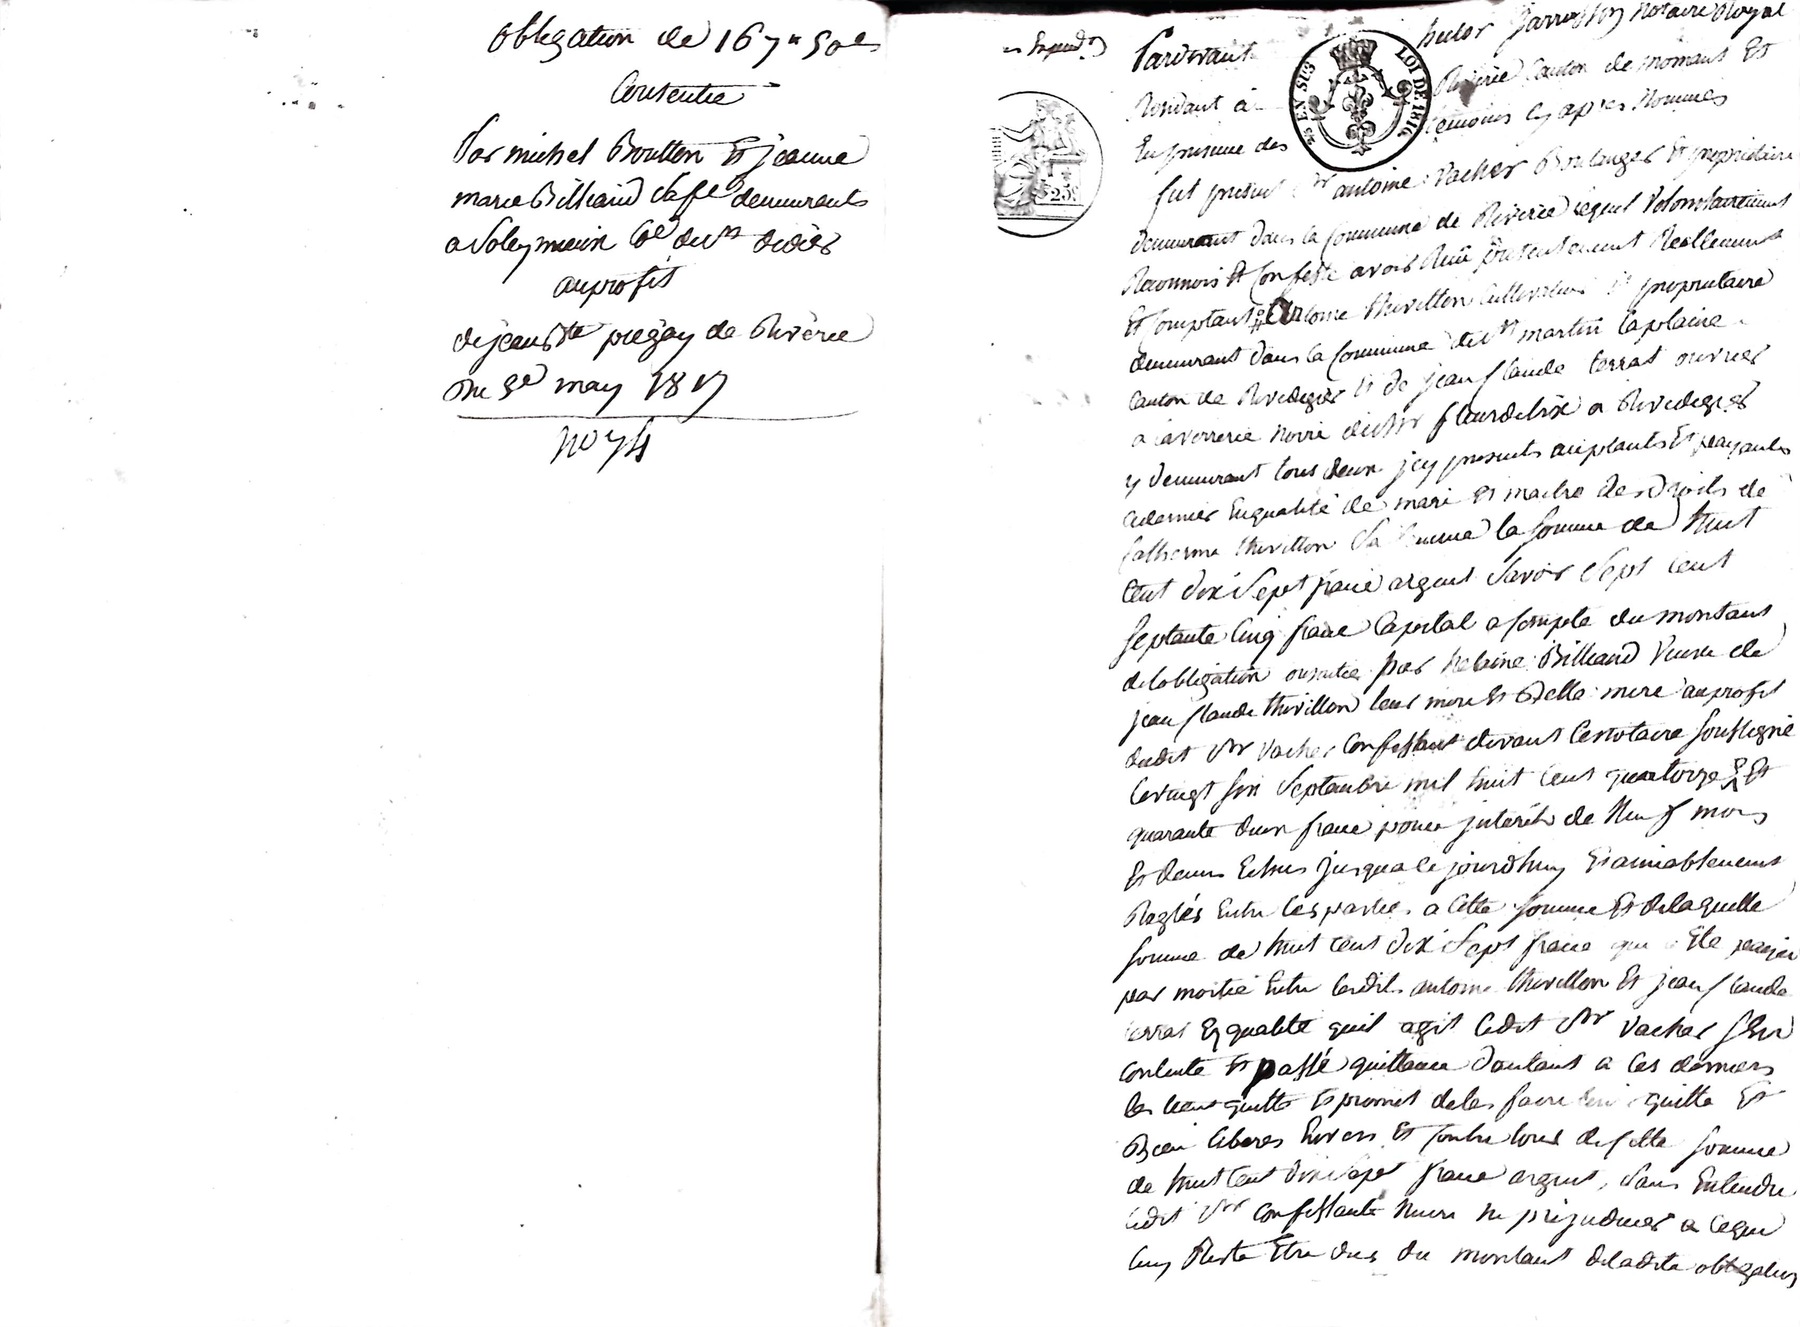 obligation de 167 " 50 c
Consentie
Par michel Boutton Et jeanne
marie Billiard Sa fe demeurants
a Soleymieux Cne de St didier
au profit
de jean Bte piegay de Riverie
Du 5e may 1817
No 74
Expéd.on
Pardevant hector Jarrosson Notaire Royal
Residant à Riverie Canton de mornant Et
En presence des témoins cy apres Nommes
25 EN SUS
LOI DE 1816
25
fut present Sr antoine Vacher Boulanger Et propriétaire
demeurant dans la Commune de Riverie lequel Volontairement
Reconnois Et Confesse avoir Reçu présentement Reellement
Et Comptant de antoine thivillon Cultivateur Et propriétaire
demeurant dans la Commune de St martin laplaine
Canton de Rivedegier Et de jean Claude terrat ouvrier
a la verrerie Noire du Sr fleurdelix a Rivedegier
y demeurant tous deux jcy presents acceptants Et payants
ce dernier En qualité de mari Et maitre des Droits de
Catherine thivillon Sa femme la Somme de huit
Cent dix Sept franc argent Savoir Sept Cent
Septante Cinq franc Capital a Compte du montant
de lobligation consentie par helaine Billiard Veuve de
jean Claude thivillon leur mere Et Belle mere au profit
dudit Sr Vacher Confessant devant le notaire Soussigné
le vingt Six Septembre mil huit Cent quatorze Et
quarante deux franc pour jnterêts de Neuf mois
Et demi Echus jusqua ce jourdhuy Et amiablement
Reglés Entre les parties a Cette Somme Et de laquelle
Somme de huit Cent dix Sept franc qui a Ete payée
par moitié Entre lesdits antoine thivillon Et jean Claude
terrat En qualité quil agit ledit Sr Vacher Sen
contente Et passé quittance dautant a Ces derniers
les tient quitte Et promet de les faire tenir quitte Et
Bien liberes Envers Et Contre tous de Cette Somme
de huit Cent dix Sept franc argent, Sans Entendre
ledit Sr Confessant Nuire ni prejudicier a Ce qui
luy Reste Etre dus du montant de ladite obligation